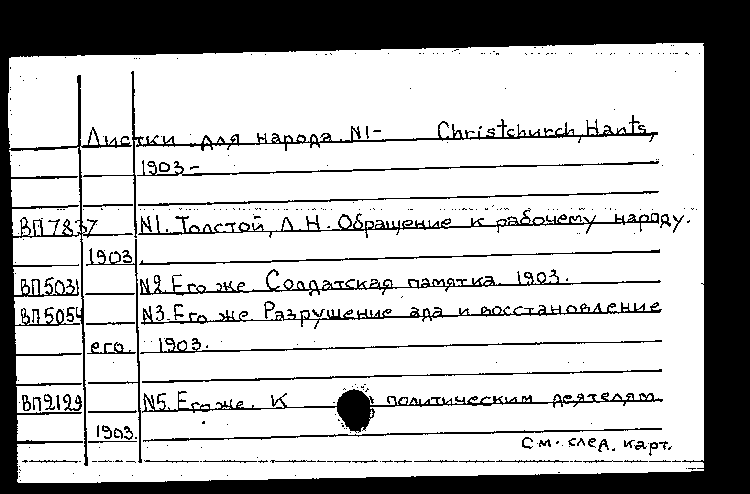 Листки для народа N1- Christchurch, Hants,
1903-
ВП7837 N1. Толстой, Л.Н. Обращение к рабочему народу.
1903.
ВП5031 N2. Его же. Солдатская памятка. 1903.
ВП5054 N3. Его же. Разрушение ада и восстановление
его. 1903.
ВП2129 N5. Его же. К политическим деятелям.
1903.
См. след. карт.